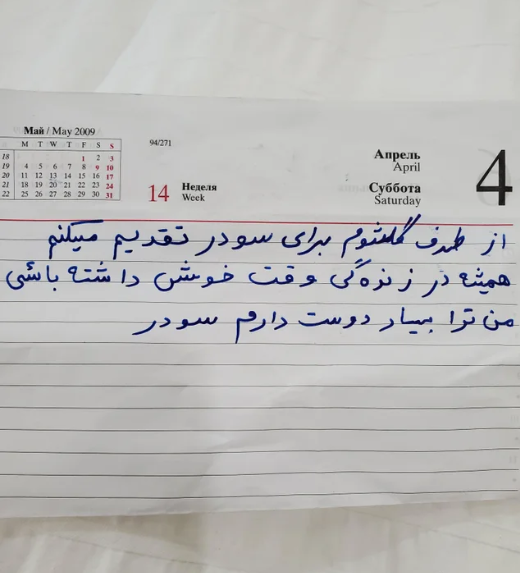 Май / May 2009
M T W T F S S
18 1 2 3
19 4 5 6 7 8 9 10
20 11 12 13 14 15 16 17
21 18 19 20 21 22 23 24
22 25 26 27 28 29 30 31
94/271
14 Неделя
Week
Апрель
April
Суббота
Saturday
4
از طرف گلثوم برای سودر تقدیم میکنم
همیشه در زنده گی وقت خوش داشته باشی
من ترا بسیار دوست دارم سودر